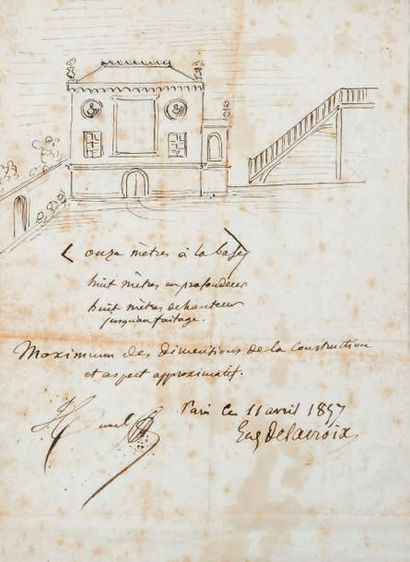 onze mètres à la base
huit mètres en profondeur
huit mètres de hauteur
jusqu'au faîtage.
Maximum des dimentions de la construction
et aspect approximatif.
Paris ce 11 avril 1857
Eug Delacroix